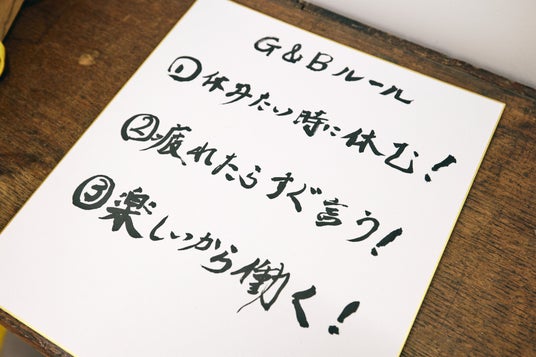 G&Bルール
①休みたい時に休む!
②疲れたらすぐ言う!
③楽しいから働く!